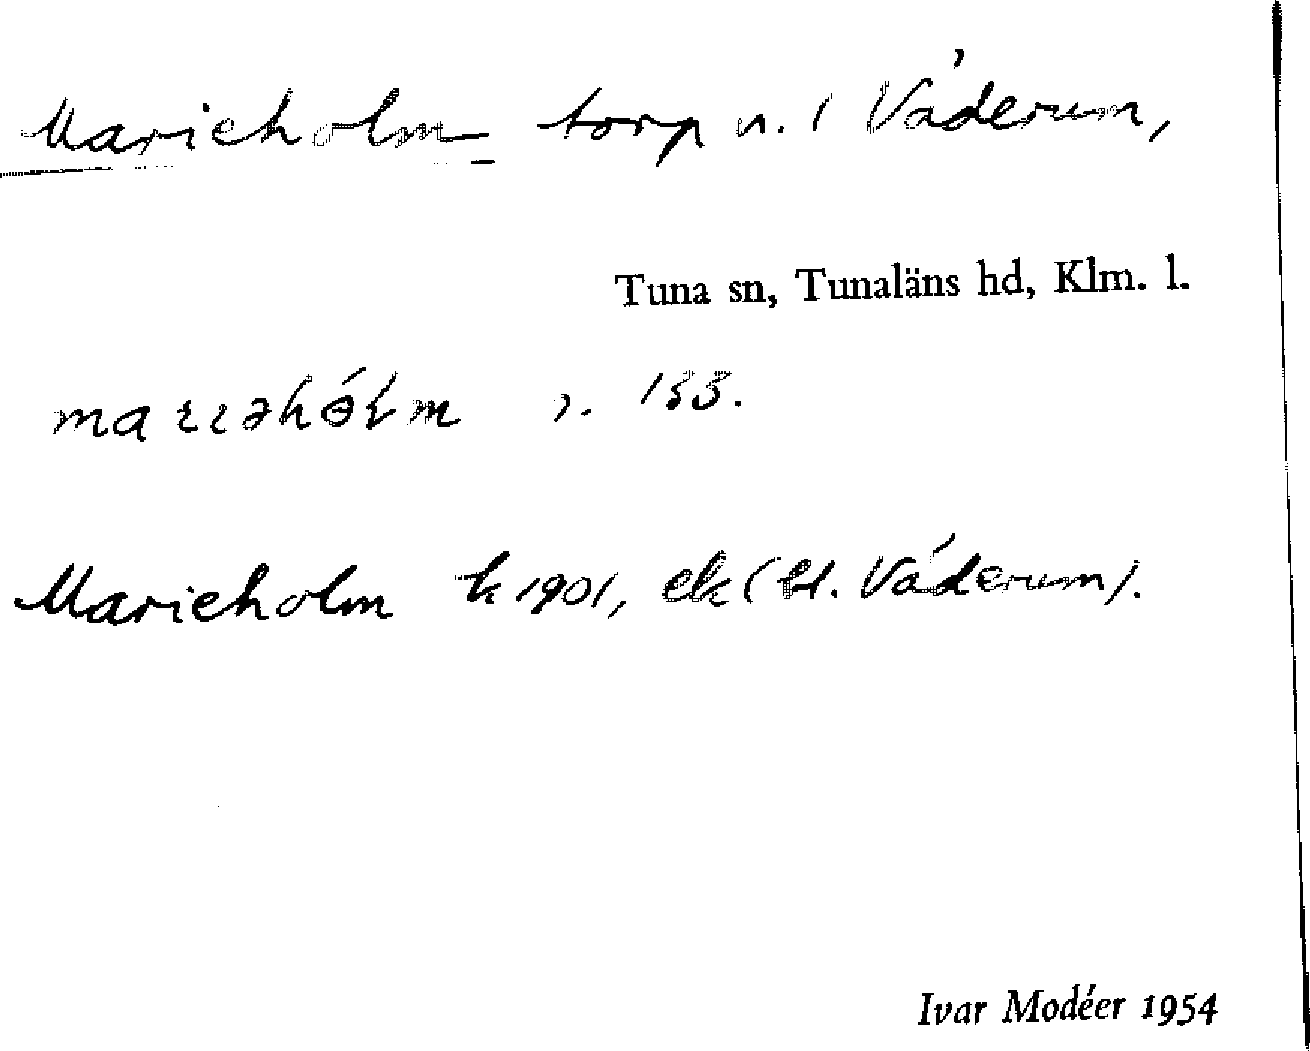 Marieholm torp u. / Väderum,
Tuna sn, Tunaläns hd, Klm. l.
153.
Marieholm k 1901, ek ( Väderum).
Ivar Modéer 1954